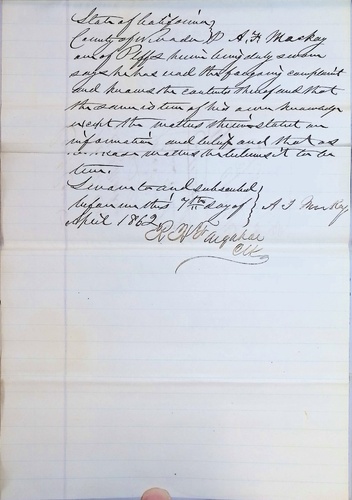 State of California
County of A F Mackay
one of Plffs herein being duly sworn
says he has read the foregoing complaint
and knows the contents thereof and that
the same is true of his own knowledge
except the matters therein stated on
information and belief and that as
matters he believes it to be
true.
Sworn to and subscribed
before me this 7th day of } A F Mackay
April 1862
R H Farquhar
Clk